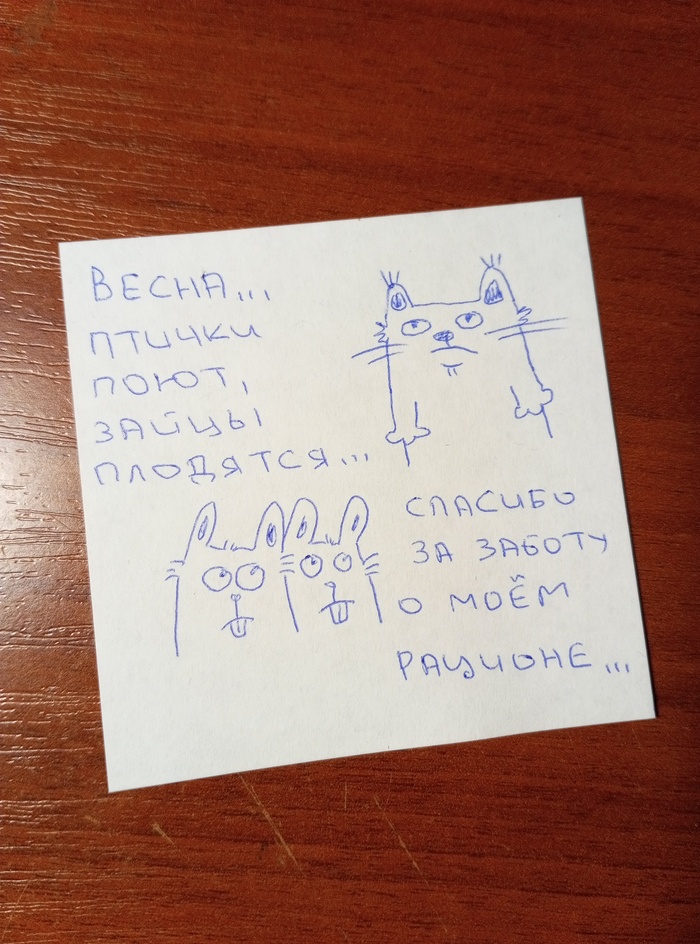 ВЕСНА...
ПТИЧКИ
ПОЮТ,
ЗАЙЦЫ
ПЛОДЯТСЯ...
СПАСИБО
ЗА ЗАБОТУ
О МОЁМ
РАЦИОНЕ...